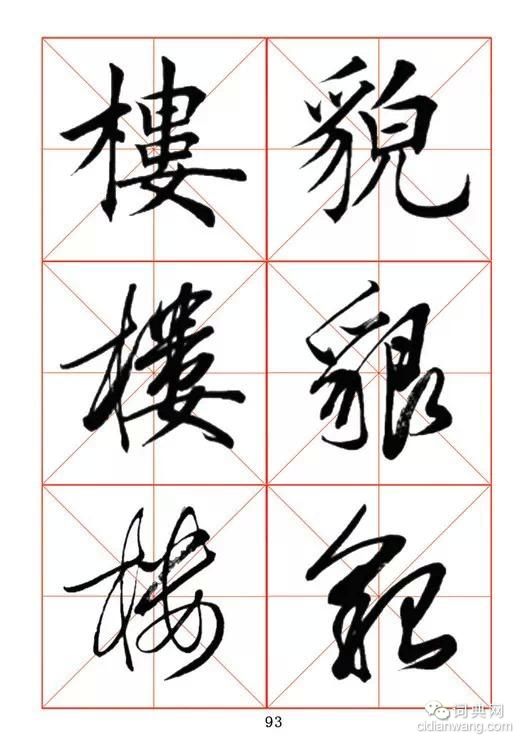 樓 貌
樓 貌
樓 貌
93
词典网
cidianwang.com